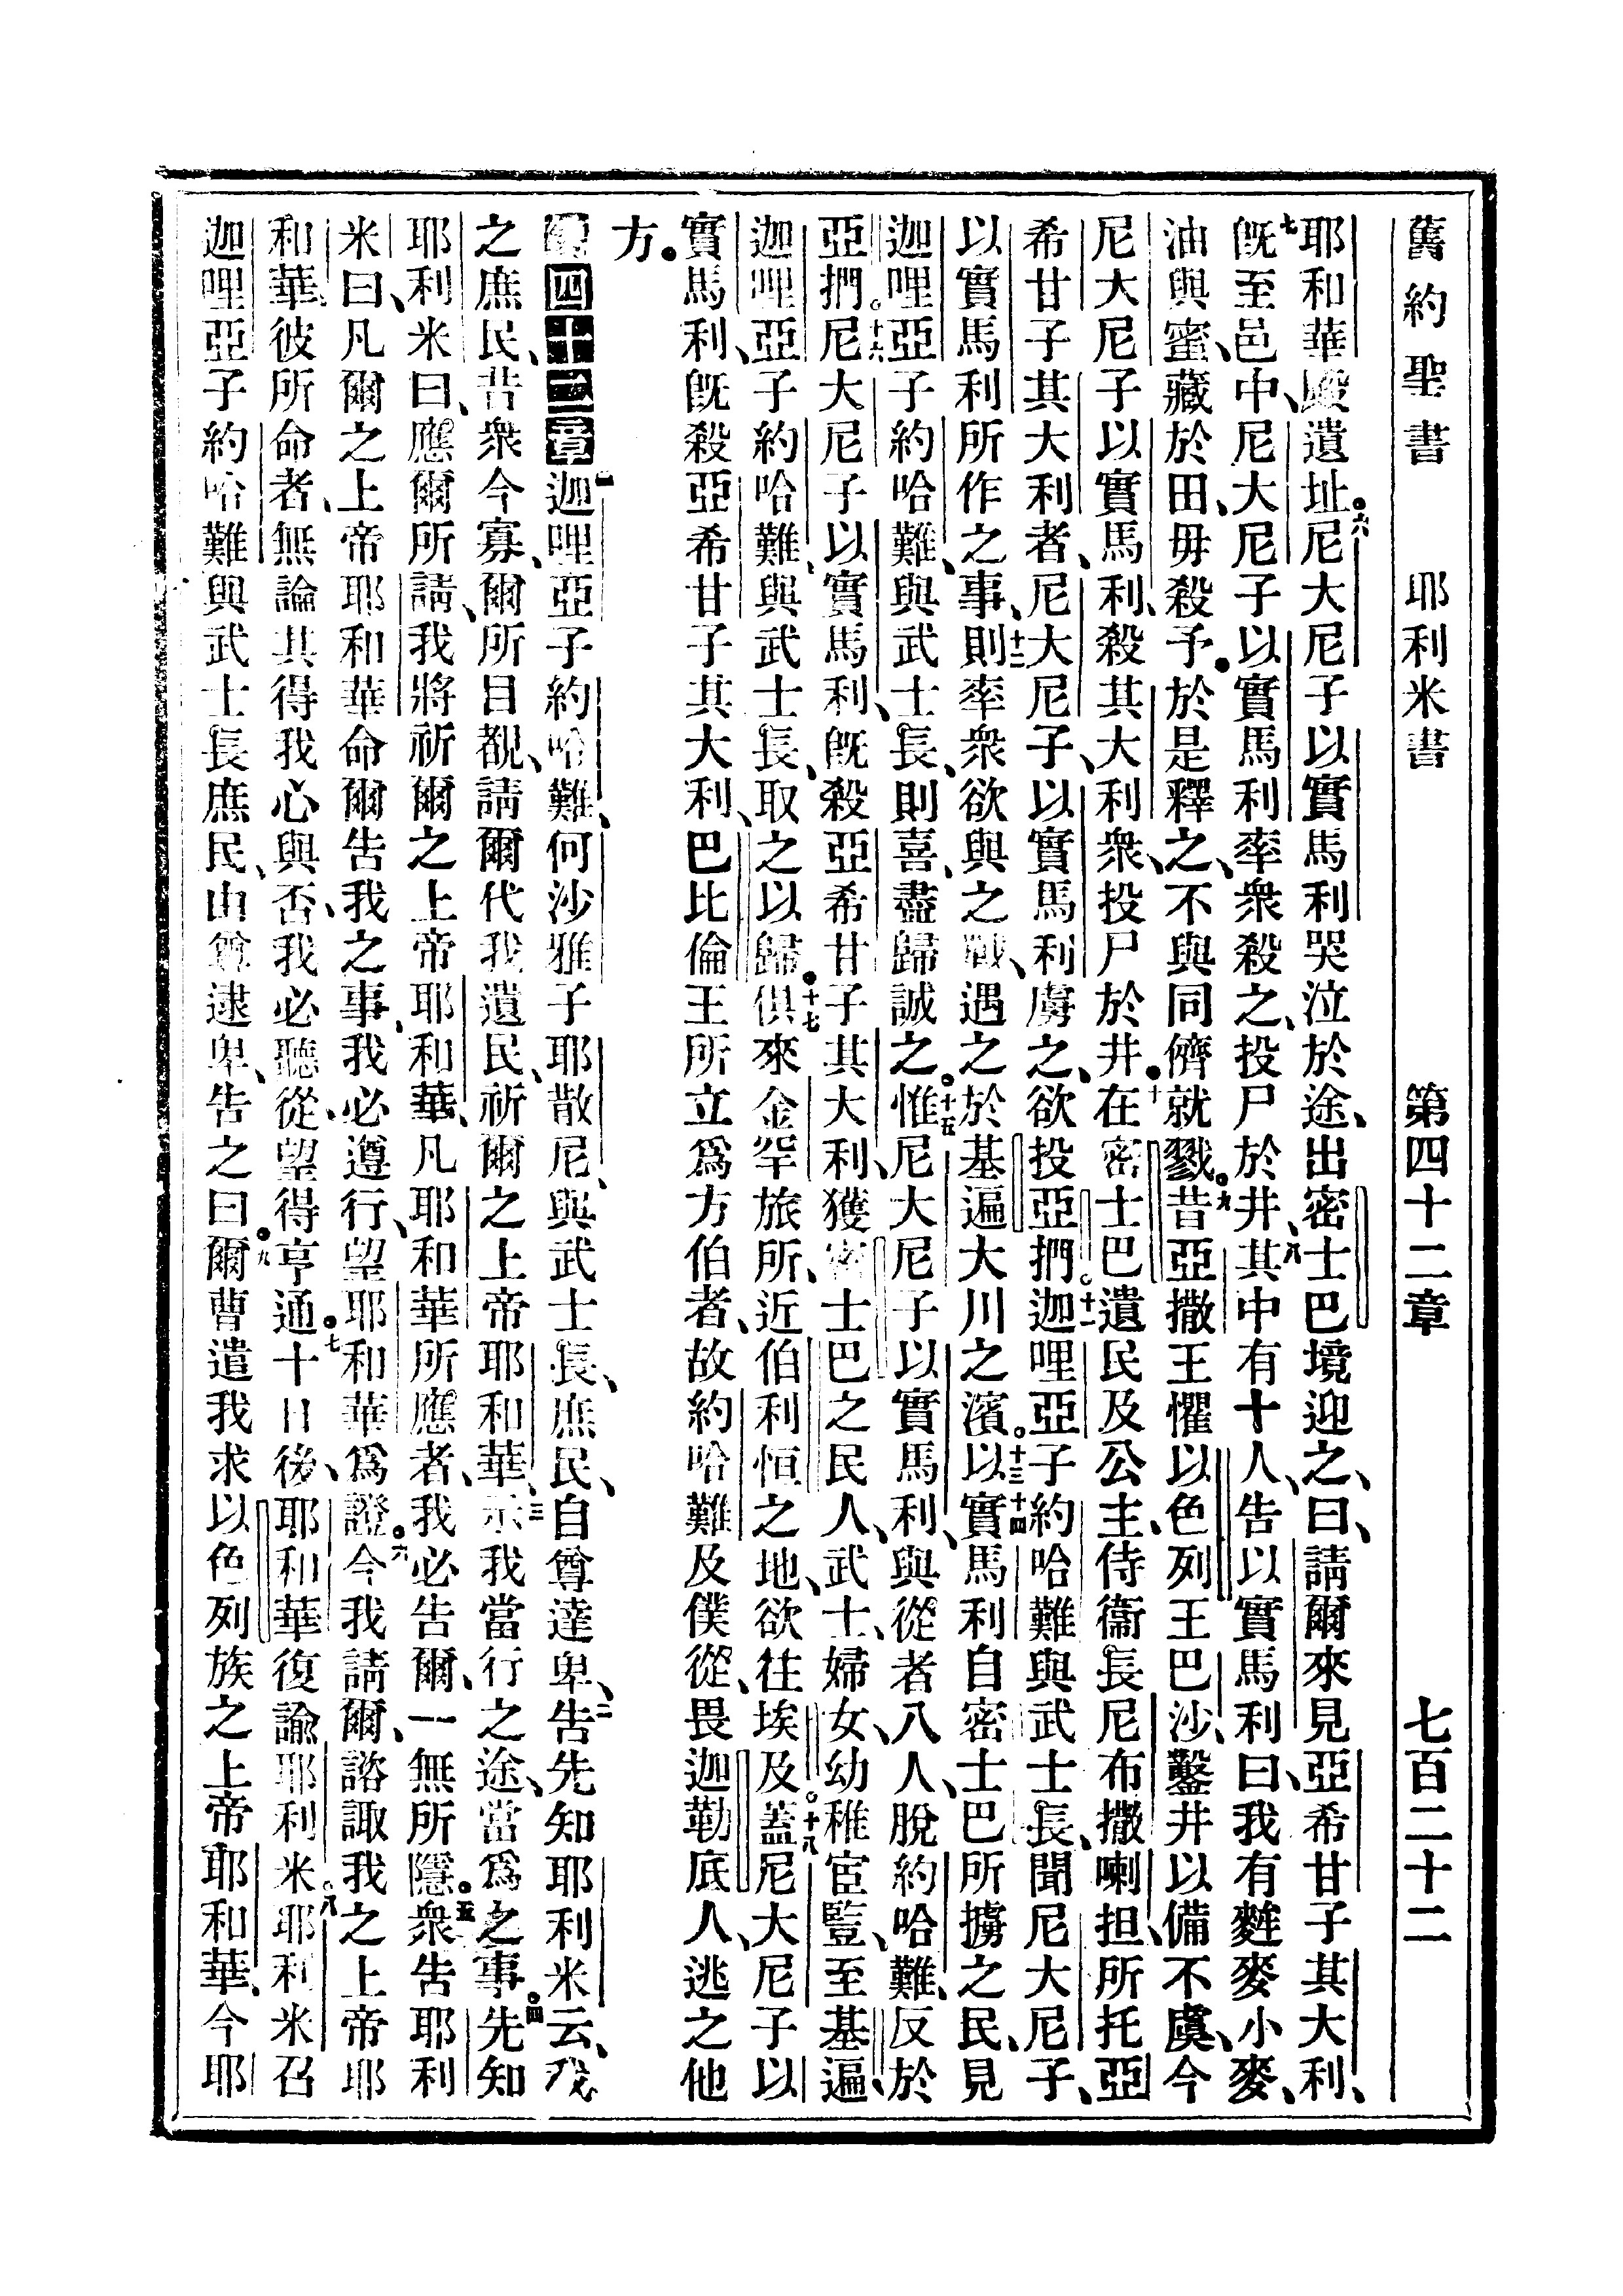 舊約聖書 耶利米書 第四十二章 七百二十二
耶和華殿遺址。六尼大尼子以實馬利哭泣於途、出密士巴境迎之、曰、請爾來見亞希甘子其大利、
七旣至邑中、尼大尼子以實馬利率衆殺之、投尸於井、八其中有十人、告以實馬利曰、我有麰麥小麥、
油與蜜、藏於田、毋殺予。於是釋之、不與同儕就戮。九昔亞撒王懼以色列王巴沙、鑿井以備不虞、今
尼大尼子以實馬利、殺其大利衆、投尸於井。十在密士巴遺民及公主、侍衞長尼布撒喇担、所托亞
希甘子其大利者、尼大尼子、以實馬利虜之、欲投亞捫。十一迦哩亞子約哈難與武士長、聞尼大尼子、
以實馬利所作之事、十二則率衆欲與之戰、遇之於基遍大川之濱。十三以實十四馬利自密士巴所擄之民、見
迦哩亞子約哈難、與武士長、則喜、盡歸誠之。十五惟尼大尼子以實馬利、與從者八人、脫約哈難、反於
亞捫。十六尼大尼子以實馬利、旣殺亞希甘子其大利、獲密士巴之民人、武士、婦女、幼稚宦豎、至基遍、
迦哩亞子約哈難、與武士長、取之以歸。十七俱來金罕旅所、近伯利恒之地、欲往埃及。十八蓋尼大尼子以
實馬利、旣殺亞希甘子其大利、巴比倫王所立爲方伯者、故約哈難及僕從、畏迦勒底人、逃之他
方。
第四十二章一迦哩亞子約哈難、何沙雅子耶散尼、與武士長、庶民、自尊逹卑、二告先知耶利米云、我
之庶民、昔衆今寡、爾所目覩、請爾代我遺民、祈爾之上帝耶和華、三示我當行之途、當爲之事。四先知
耶利米曰、應爾所請、我將祈爾之上帝耶和華、凡耶和華所應者、我必告爾、一無所隱。五衆告耶利
米曰、凡爾之上帝耶和華命爾告我之事、我必遵行、望耶和華爲證。六今我請爾、諮諏我之上帝耶
和華、彼所命者、無論其得我心與否、我必聽從、望得亨通。七十日後、耶和華復諭耶利米。八耶利米召
迦哩亞子約哈難與武士長庶民、由尊逮卑、告之曰。九爾曹遣我求以色列族之上帝耶和華、今耶